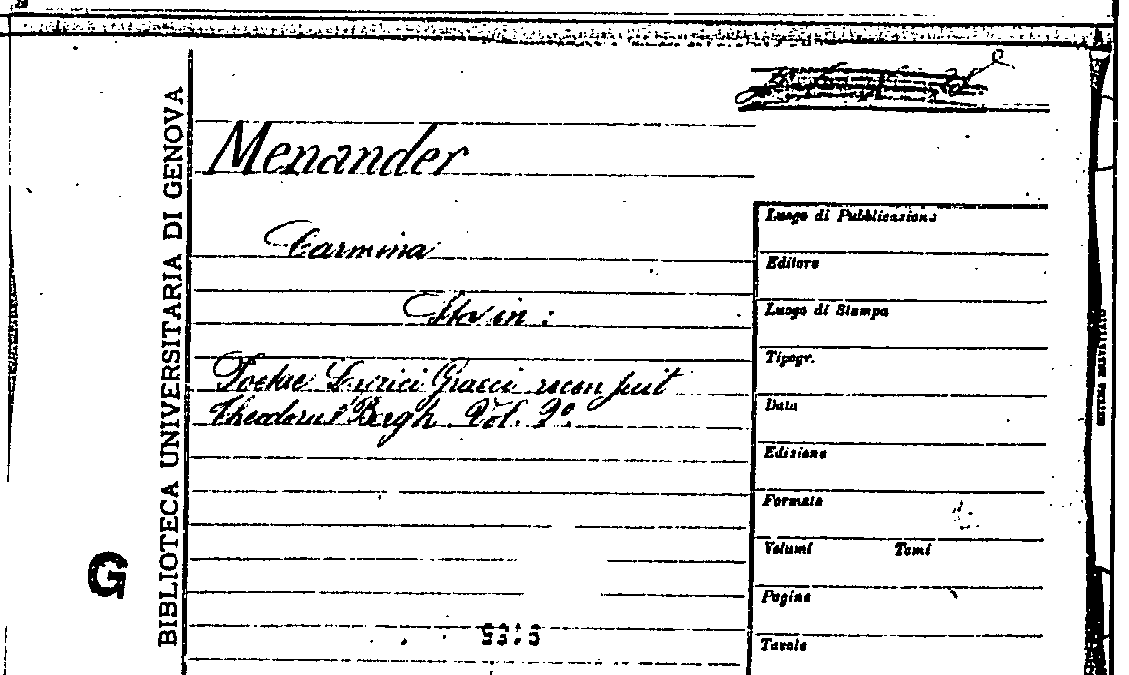 BIBLIOTECA UNIVERSITARIA DI GENOVA
G
Menander
Carmina
Sta in:
Poetae Lyrici Graeci recen suit
Theodorus Bergh. Vol. 2º.
Luogo di Pubblicazione
Editore
Luogo di Stampa
Tipogr.
Data
Edizione
Formato
Volumi Tomi
Pagine
Tavole